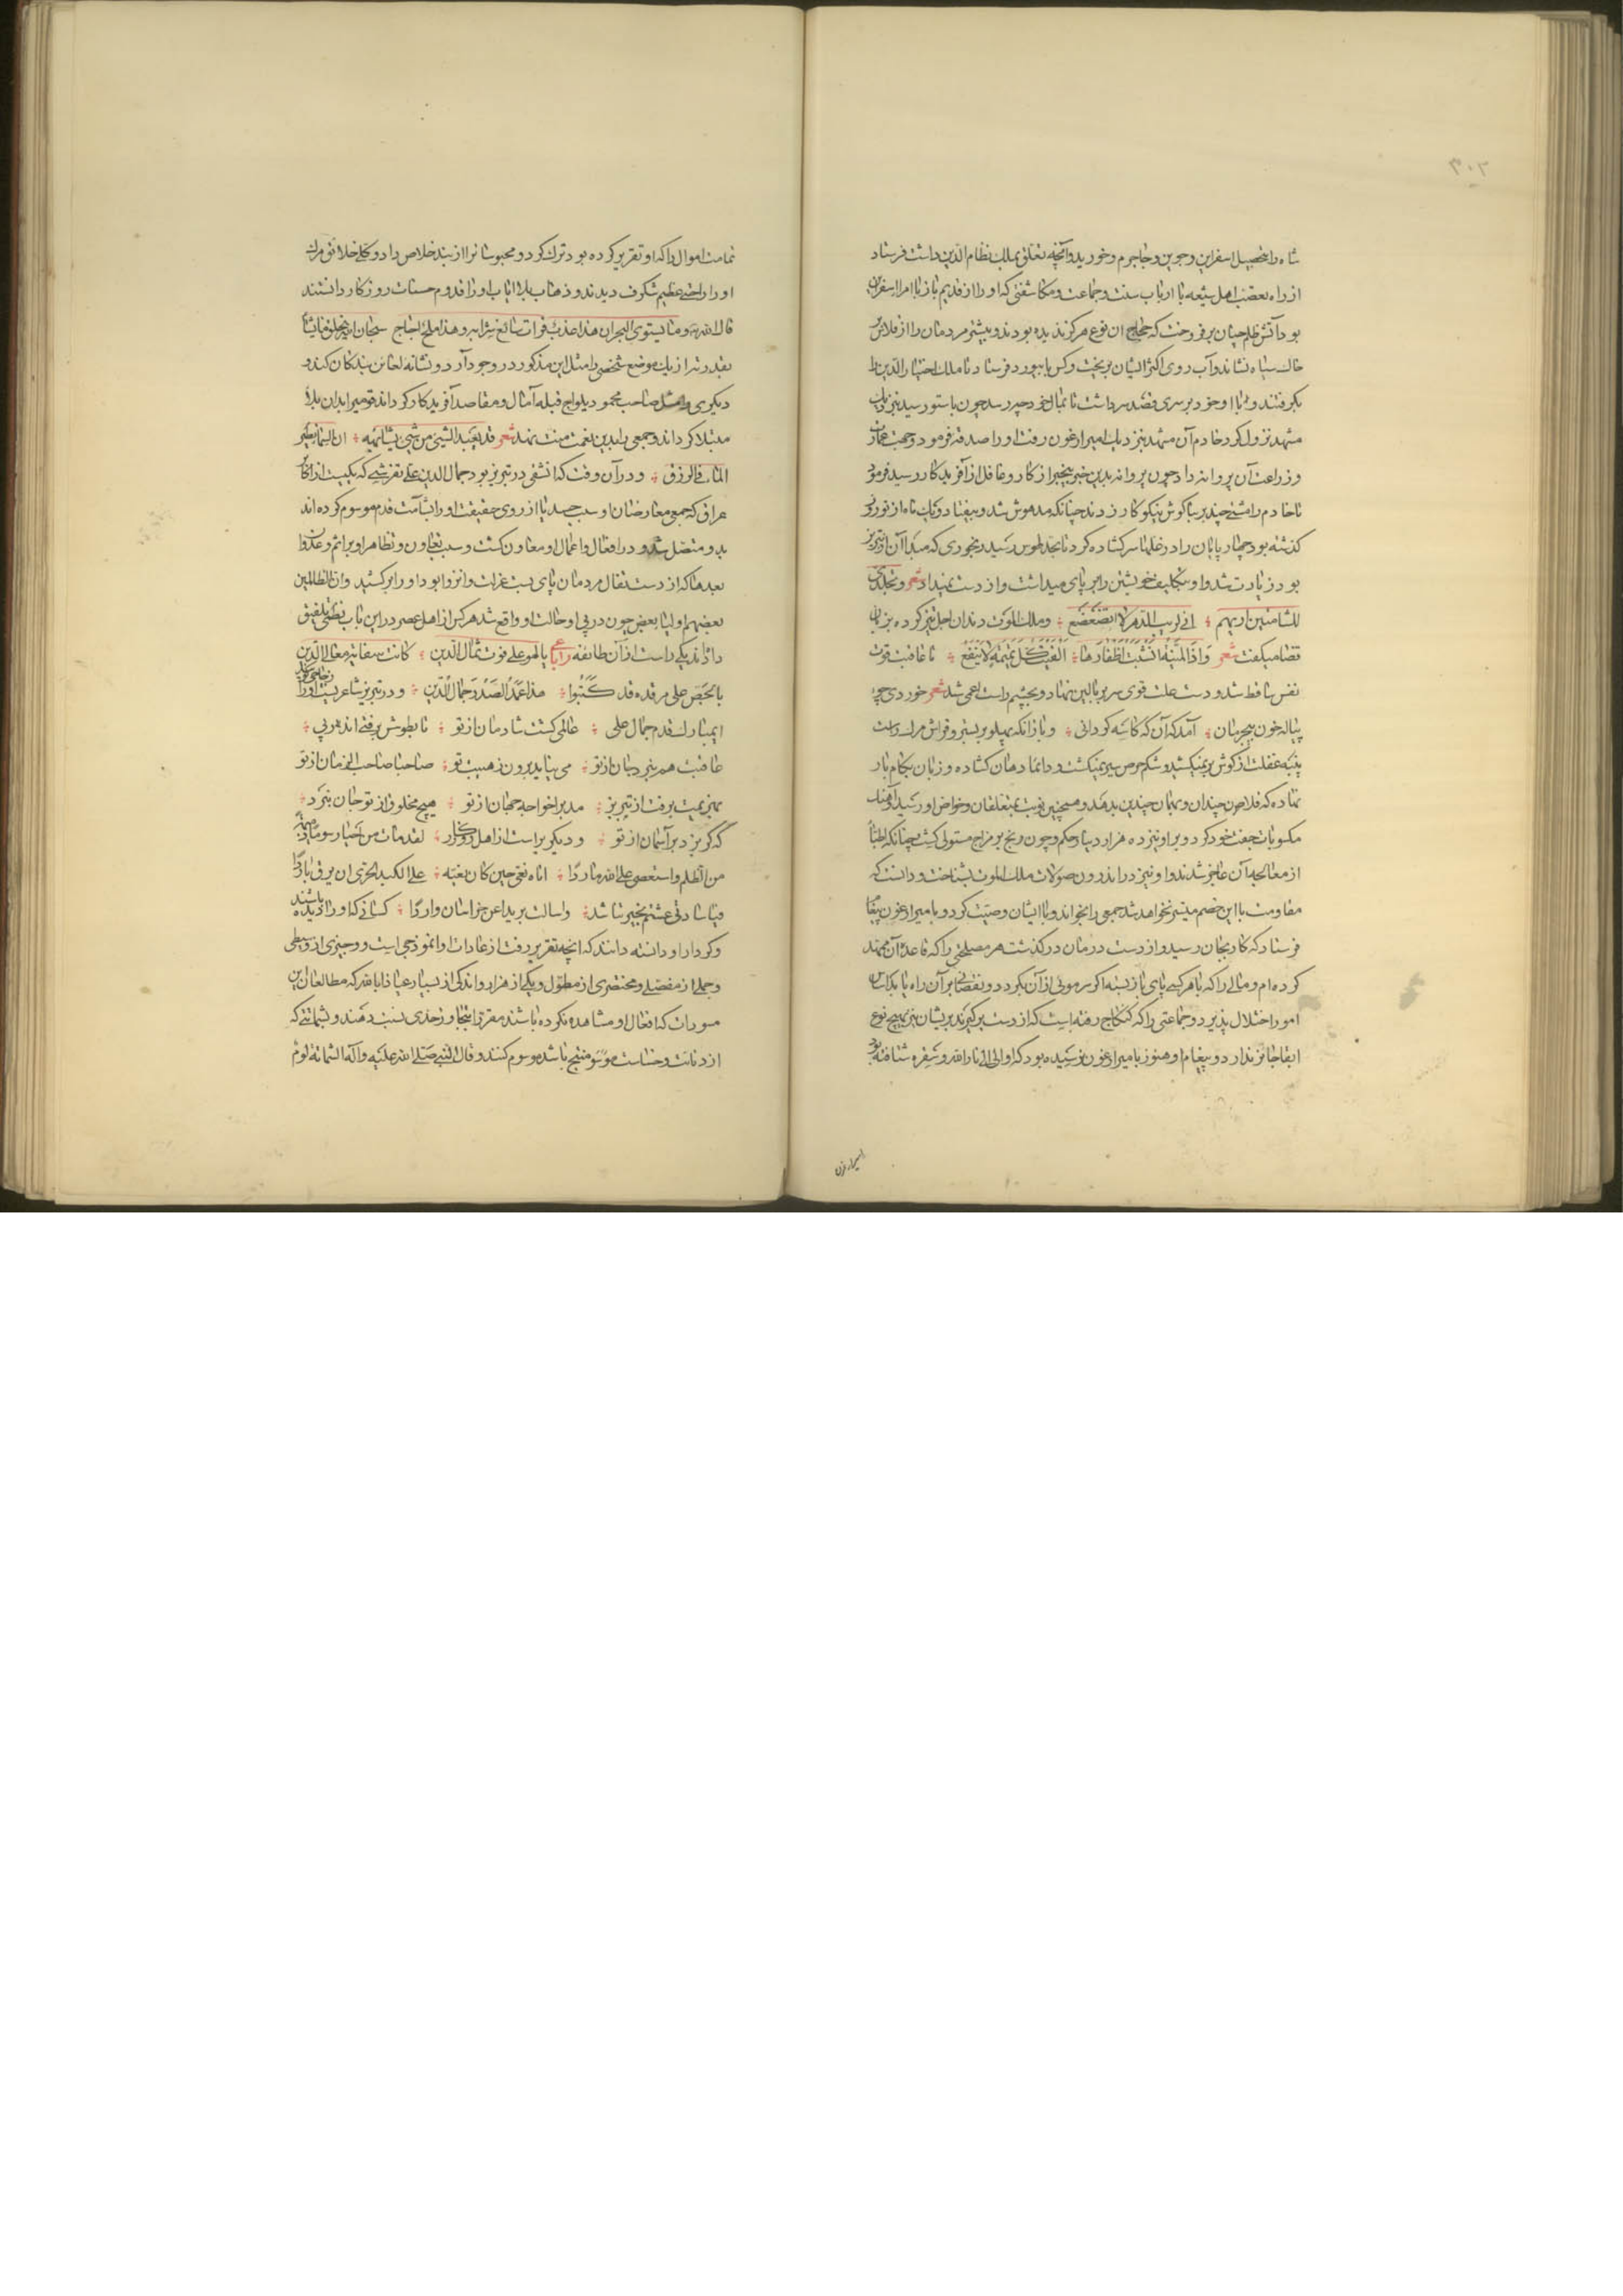 ۳۰۲
شاه را بتحصیل اسفراین و جوین و جاجرم و خورید و آنچه تعلق بملک نظام الدین داشت فرستاد
از راه تعصب اهل شیعه با ارباب سنت و جماعت و مکاشفتی که او را از قدیم باز با امرا اسفراین
بود آتش ظلم چنان برفروخت که حجاج آن نوع هرگز ندیده بودند و بیشتر مردمان را از فلاس بر
خاک سیاه نشاند و آب روی اکثر ایشان بریخت و کس بابیورد فرستاد تا ملک اختیار الدین را
بگرفتند و با او خود بر سری قصد سر داشت تا بمال خود چه رسد چون باستو رسید بنزدیک
مشهد نزول کرد خادم آن مشهد بنزدیک امیر ارغون رفت او را صدقه فرمود و جهت عمارت
و زراعت آن پروانه داد چون پروانه بدین خبر بیخبر از کار و غافل از آفریدکار رسید فرمود
تا خادم را مشتی چند بر بناگوش نیکو کار زدند چنانکه مدهوش شد و بیفتاد و یک ماه از نوروز
گذشته بود چهار پایان را در غلها سر گشاده کرد تا بحد طوس رسید رنجوری که مبدا آن از تبریز
بود زیادت شد و او بتکلیف خویشتن را بر پای میداشت و از دست نمیداد شعر و تجلدی
للشامتین اریهم ؛ انی لریب الدهر لا اتضعضع ؛ و ملک الموت دندان اجل تیز کرده بزبان
قضا میگفت شعر و اذا المنیة انشبت اظفارها ؛ الفیت کل تمیمة لا تنفع ؛ تا عاقبت قوت
نفس ساقط شد و دست علت قوی سر ببالین نهاد و بچشم راست اعمی شد شعر خوردی چو
پیاله خون بیجرمان ؛ آمد که آن که کاسه گردانی ؛ و با زانکه پهلو بر بستر و فراش مرگ داشت
پنبه غفلت از گوش بر نمیکشید و شکم حرص سیر نمیگشت و دائما دهان گشاده و زبان بکام باز
نهاده که فلا را چندان و بهمان چندین بدهند و همچنین نوبت بمتعلقان و خواص او رسید آهنگ
مکسوبات جفت خود کرد و بر او نیز ده هزار دینار حکم و چون رنج بر مزاج مستولی گشت چنانکه اطبا
از معالجه آن عاجز شدند و او نیز در اندرون صولات ملک الموت بشناخت و دانست که
مقاومت با این خصم میسر نخواهد شد جمعی را بخواند و با ایشان وصیت کرد و بامیر ارغون پیغام
فرستاد که کار بجان رسید و از دست درمان درگذشت هر مصلحتی را که قاعده آن ممهد
کرده ام و مالی را که با هر کسی پای باز بسته اگر سر مویی از آن بگردد و نقصانی بر آن راه یابد اساس
امور اختلال پذیرد و جماعتی را که کنکاج رفته است که از دست برگیرند بریشان نیز بهیچ نوع
ابقا جائز ندارد و پیغام او هنوز بامیر ارغون نرسیده بود که او الی الی نار الله و سقره شتافته بود
امیر ارغون
تمامت اموال را که او تقریر کرده بود ترک کرد و محبوسانرا از بند خلاص داد و کلی خلائق مرگ
او را راحتی عظیم شگرف دیدند و ذهاب بلا ایاب او را قدوم حسنات روزگار دانستند
قال الله تع و ما یستوی البحران هذا عذب فرات سائغ شرابه و هذا ملح اجاج سبحان الله یخلق ما یشا
بقدرته از یک موضع شخصی را مثل این مذکور در وجود آرد و نشانه لعائن بندگان کند و
دیگری را مثل صاحب محمود یلواج قبله آمال و مقاصد آفریدکار گرداند قومی را بدان بلا
مبتلا گرداند و جمعی را بدین نعمت منت نهد شعر قد یبعد الشیئ من شیئ یشابهه ؛ ان السما نظیر
الما فی الزرق ؛ و در آن وقت که آن شقی در تبریز بود جمال الدین علی تفرشی که یکیست از اکابر
عراق که جمعی معارضان او سبب حسد یا از روی حقیقت او را بشآمت قدم موسوم کرده اند
بدو متصل شد و در افعال و اعمال او معاون گشت و سبب تعاون و تظاهر او بر اثم و عدوان
بعد ما که از دست تقال مردمان پای بست عزلت و انزوا بود او را برکشید و ان الظالمین
بعضهم اولیا بعض چون در پی او حالت او واقع شد هر کس از اهل عصر در این باب نظمی تلفیق
داده اند یکی راست از آن طائفه رباعی یالهو علی فوت شمال الدین ؛ کانت سفانیه معالی الدین
بالجص علی مرقده قد کتبوا ؛ هذا عمل الصدر جمال الدین ؛ و در تبریز شاعریست او را زجاجی گوید
ایمبارک قدم جمال علی ؛ عالمی گشت شادمان از تو ؛ تا بطوش برفته اند هر پی ؛
عاقبت هم نبرد جان از تو ؛ می بناید برون ز هیبت تو ؛ صاحبا صاحب الزمان از تو
بهزیمت برفت از تبریز ؛ مدبرا خواجه جهان از تو ؛ هیچ مخلوق از تو جان نبرد ؛
که گریزد بر آسمان از تو ؛ و دیگر براست از اهل روزگار ؛ لقد مات من احیا رسوما
من الظلم و استعصی علی الله ماردا ؛ اتاه نعی حین کان بغیه ؛ علی الکبد الحری ان یرق باردا
فیا سادتی عشتم بخیر ناشد ؛ و اسالت بریدا عن خراسان واردا ؛ کسانی که او را دیده باشند
و کردار او دانسته دانند که آنچه تقریر رفت از عادات او انموذجی است و وجیزی از وسیطی
و جملی از مفصلی و مختصری از مطول و یکی از هزار و اندکی از بسیار عیاذا بالله که مطالعان این
مسودات که افعال او مشاهده نکرده باشند مقرر این تجاوز حدی نسبت دهند و بشماتتی که
از دنائت و خساست موسو منتج باشد موسوم کنند و قال النبی صلی الله علیه و آله الشماتة لوم